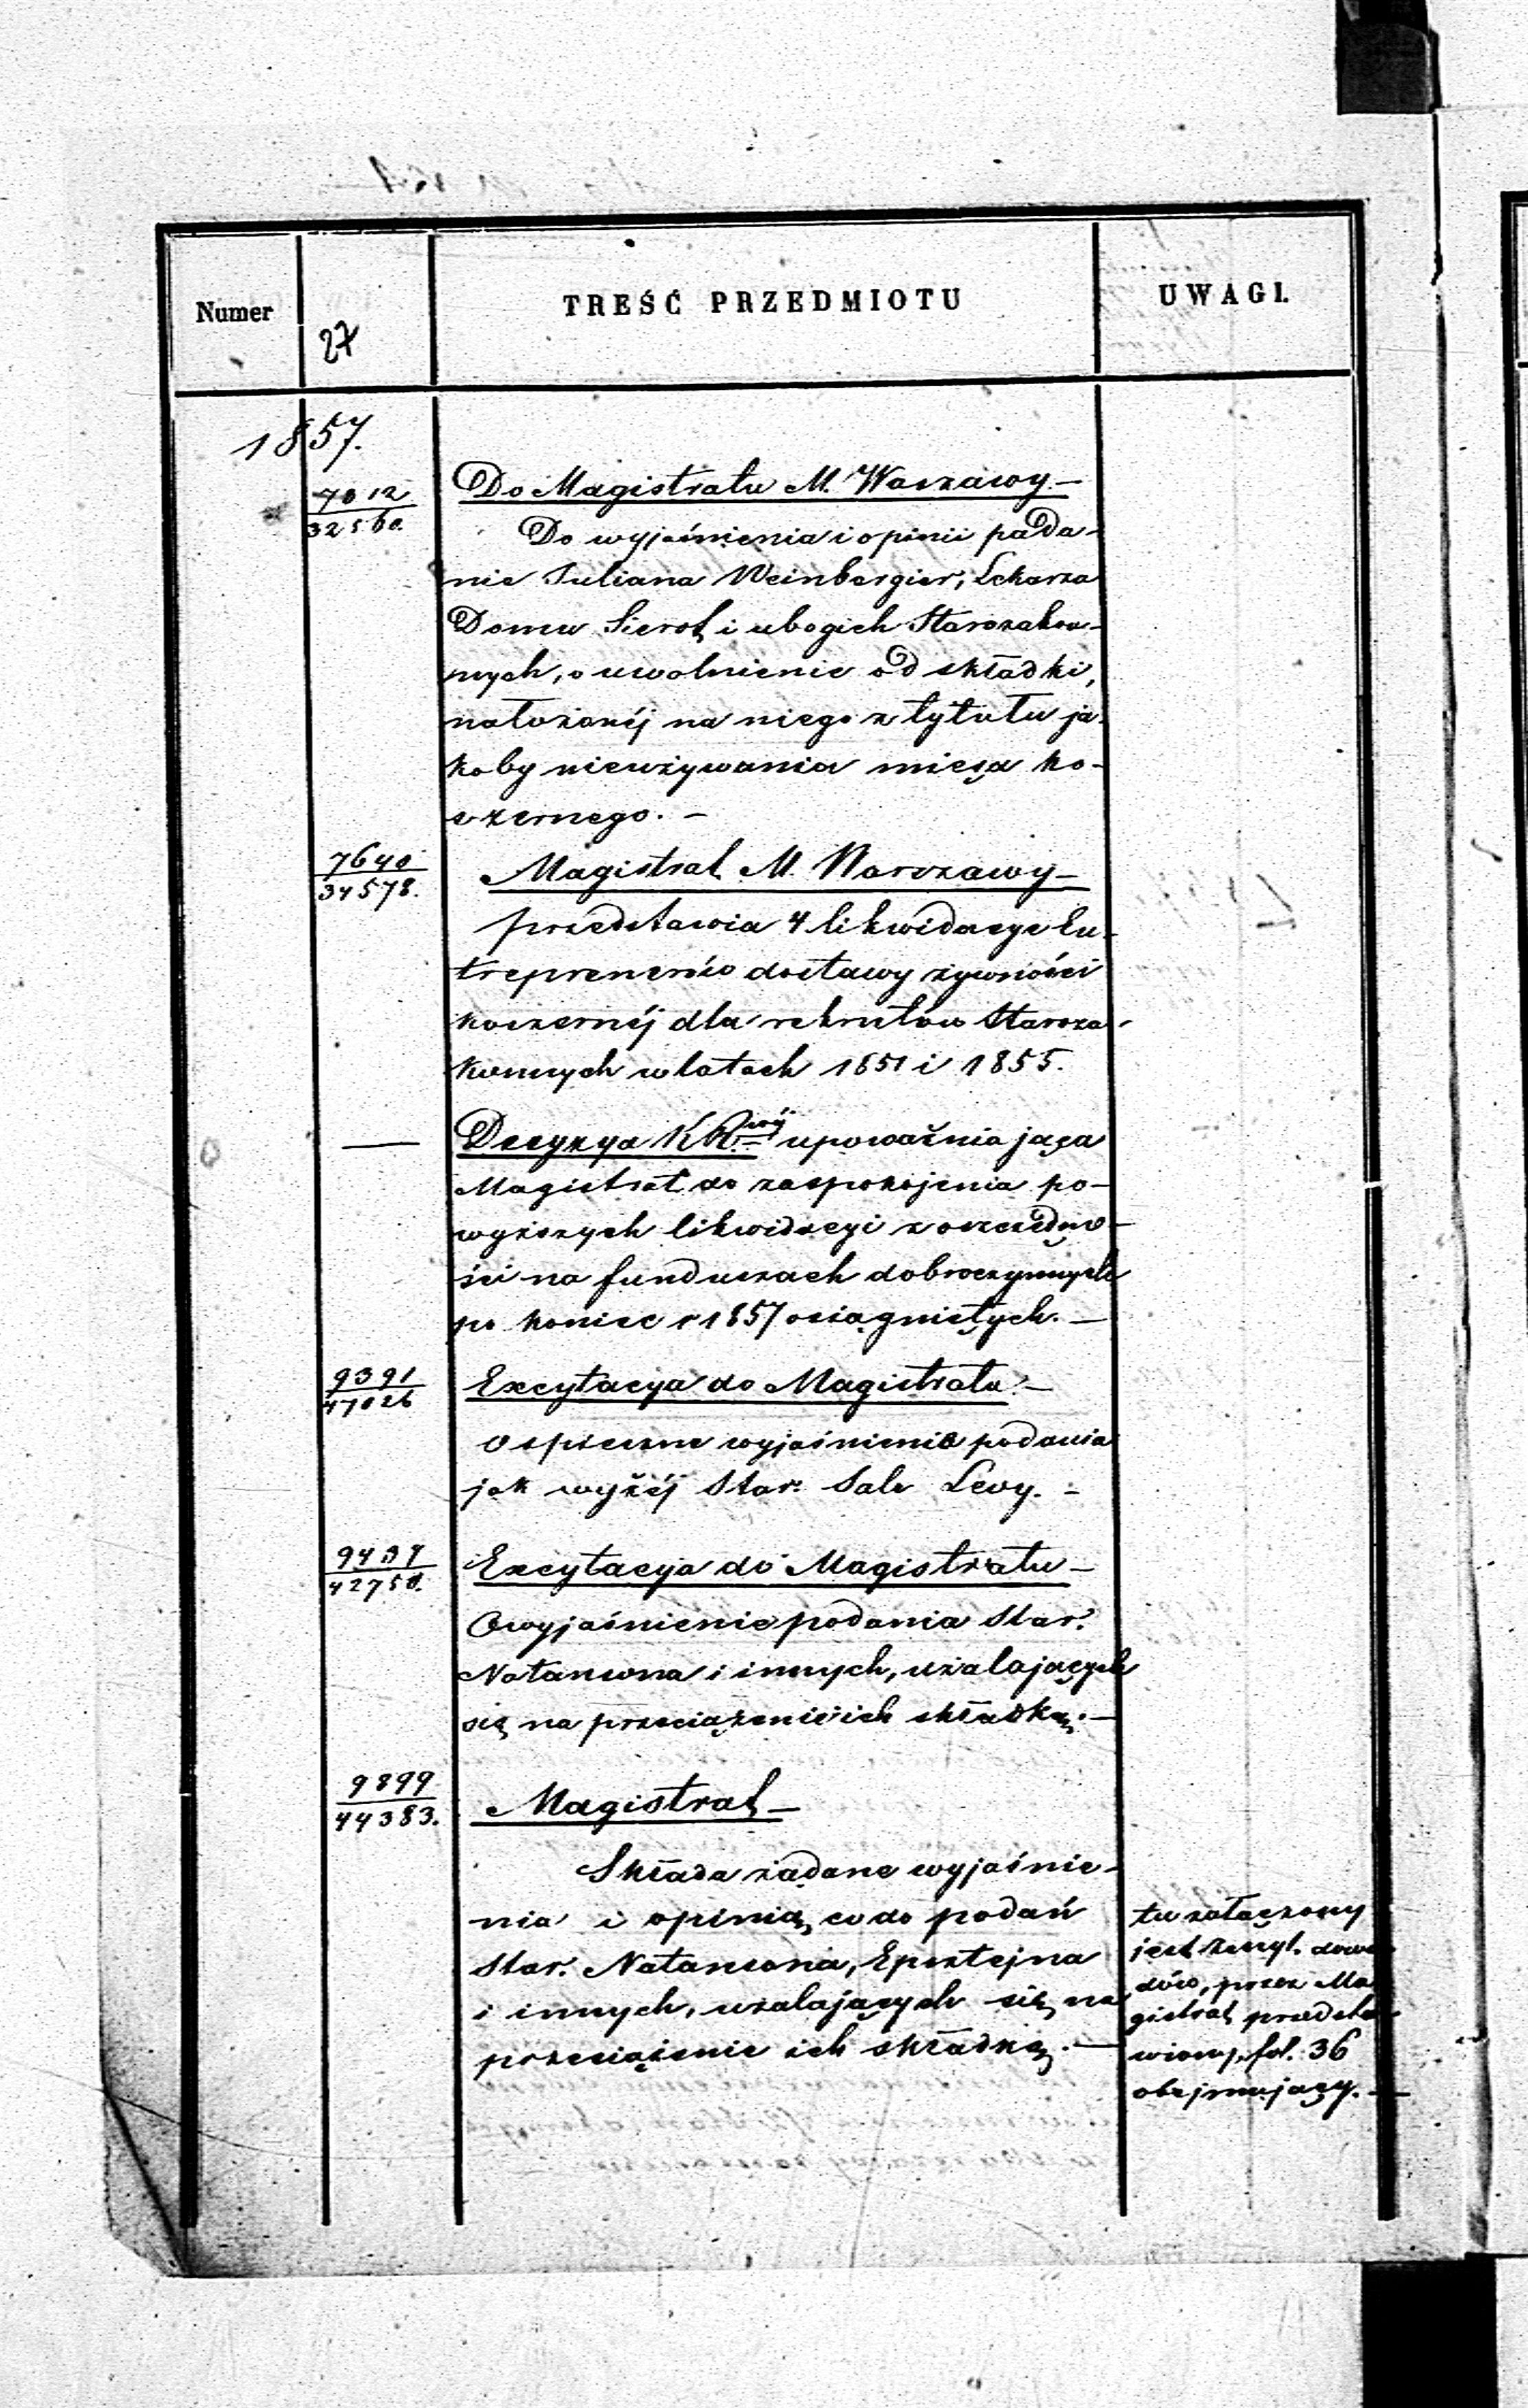 Numer
27
TREŚĆ PRZEDMIOTU
UWAGI.
1857.
7012
32560.
Do Magistratu M. Warszawy. —
Do wyjaśnienia i opinii poda-
nie Juliana Weinbergier, Lekarza
Domu Sierot i ubogich Starozakon-
nych, o uwolnienie od składki,
nałożonéj na niego z tytułu ja-
koby nieużywania mięsa ko-
szernego. —
7640
34578.
Magistrat M. Warszawy —
przedstawia 4 likwidacye En-
treprenerów dostawy żywności
koszernéj dla rekrutów Staroza-
konnych w latach 1851 i 1855.
—
Decyzya K R wéj upoważniająca
Magistrat do zaspokojenia po-
wyższych likwidacyi z oszczędno-
ści na funduszach dobroczynnych
po koniec r 1857 osiągniętych. —
9391
47026
Excytacya do Magistratu. —
O spieszne wyjaśnienie podania
jak wyżéj Star. Sale Levy. —
9437
42750.
Excytacya do Magistratu —
O wyjaśnienie podania Star.
Natansona i innych, użalających
się na przeciążenie ich składką. —
9899
44383.
Magistrat —
Składa żądane wyjaśnie-
nia i opinią, co do podań
Star. Natansona, Epsztejna
i innych, użalających się na
przeciążenie ich składką. —
tu załączony
jest zeszyt. dowo-
dów, przez Ma
gistrat przedsta-
wiony, fol. 36
obejmujący. —